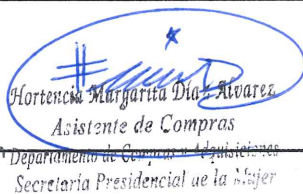 Hortencia Margarita Díaz Alvarez
Asistente de Compras
Departamento de Compras y Adquisiciones
Secretaria Presidencial de la Mujer